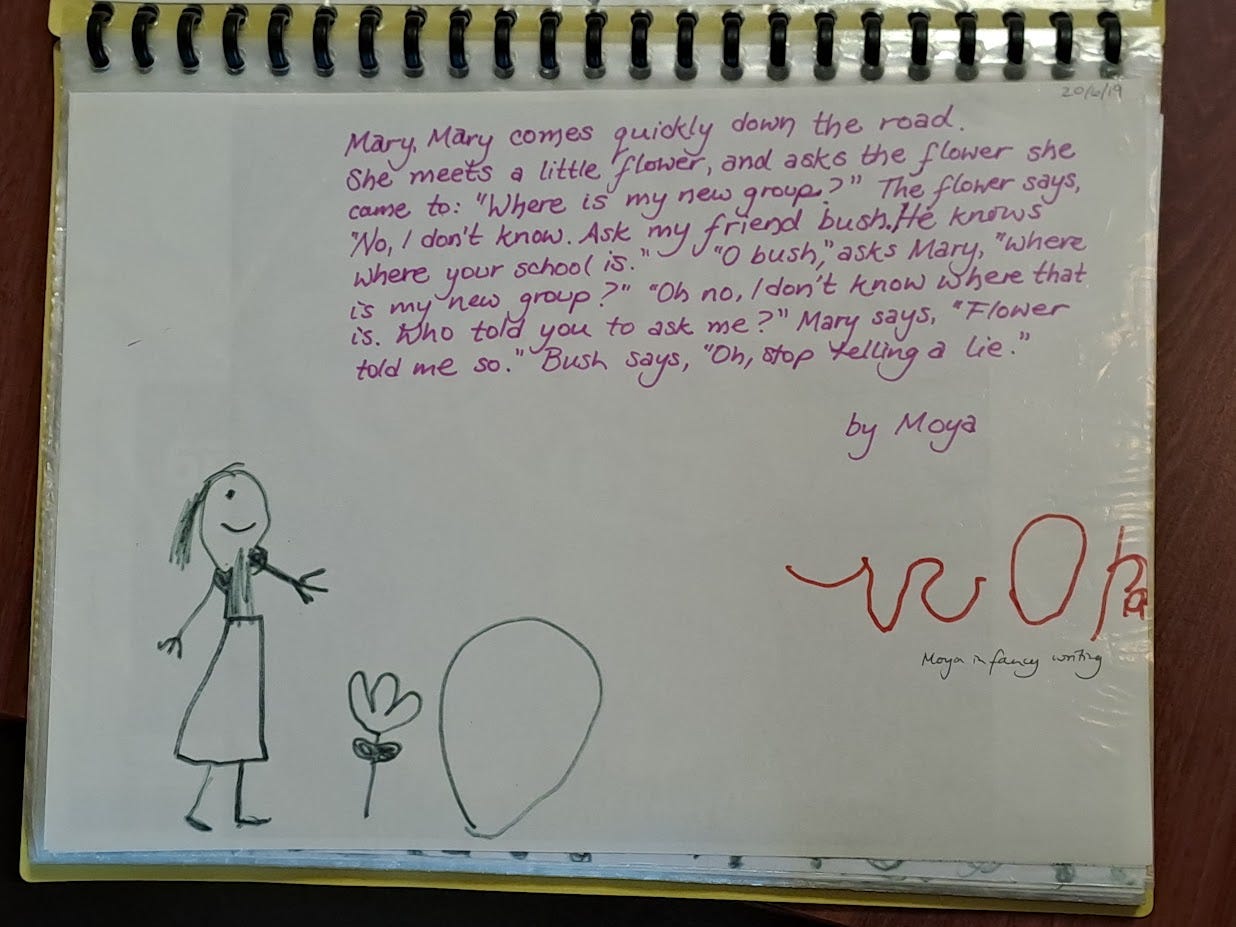 20/6/19
Mary, Mary comes quickly down the road.
She meets a little flower, and asks the flower she
came to: "Where is my new group?" The flower says,
"No, I don't know. Ask my friend bush. He knows
where your school is." "O bush," asks Mary, "where
is my new group?" "Oh no, I don't know where that
is. Who told you to ask me?" Mary says, "Flower
told me so." Bush says, "Oh, stop telling a lie."
by Moya
Moya in fancy writing